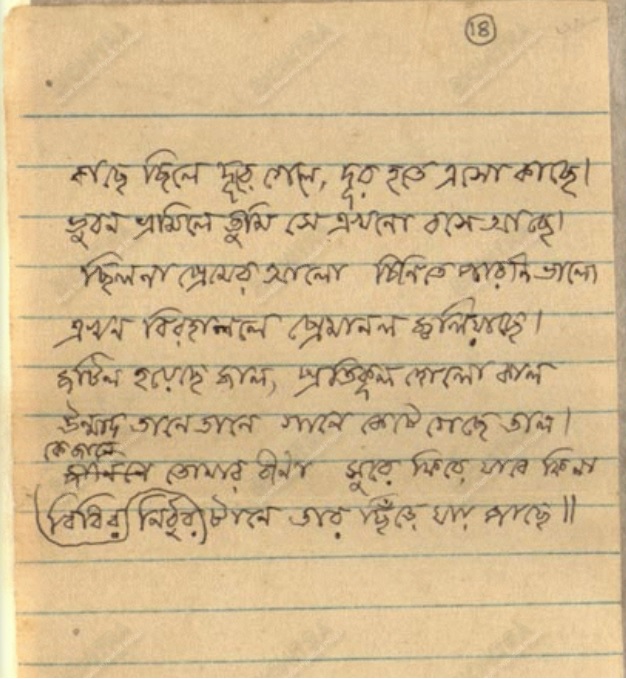 18
কাছে ছিলে দূরে গেলে, দূর হতে এসো কাছে।
ভুবন ভ্রমিলে তুমি সে এখনো বসে আছে।
ছিলনা প্রেমের আলো চিনিতে পারনি ভালো
এখন বিরহানলে প্রেমানল জ্বলিয়াছে।
জটিল হয়েছে জাল, প্রতিকূল হোলো কাল
উন্মাদ তানে তানে গানে কেটে গেছে তাল।
কে জানে
তোমার বীনা সুরে ফিরে যাবে কিনা
বিধির নিঠুর টানে তার ছিঁড়ে যায় পাছে॥